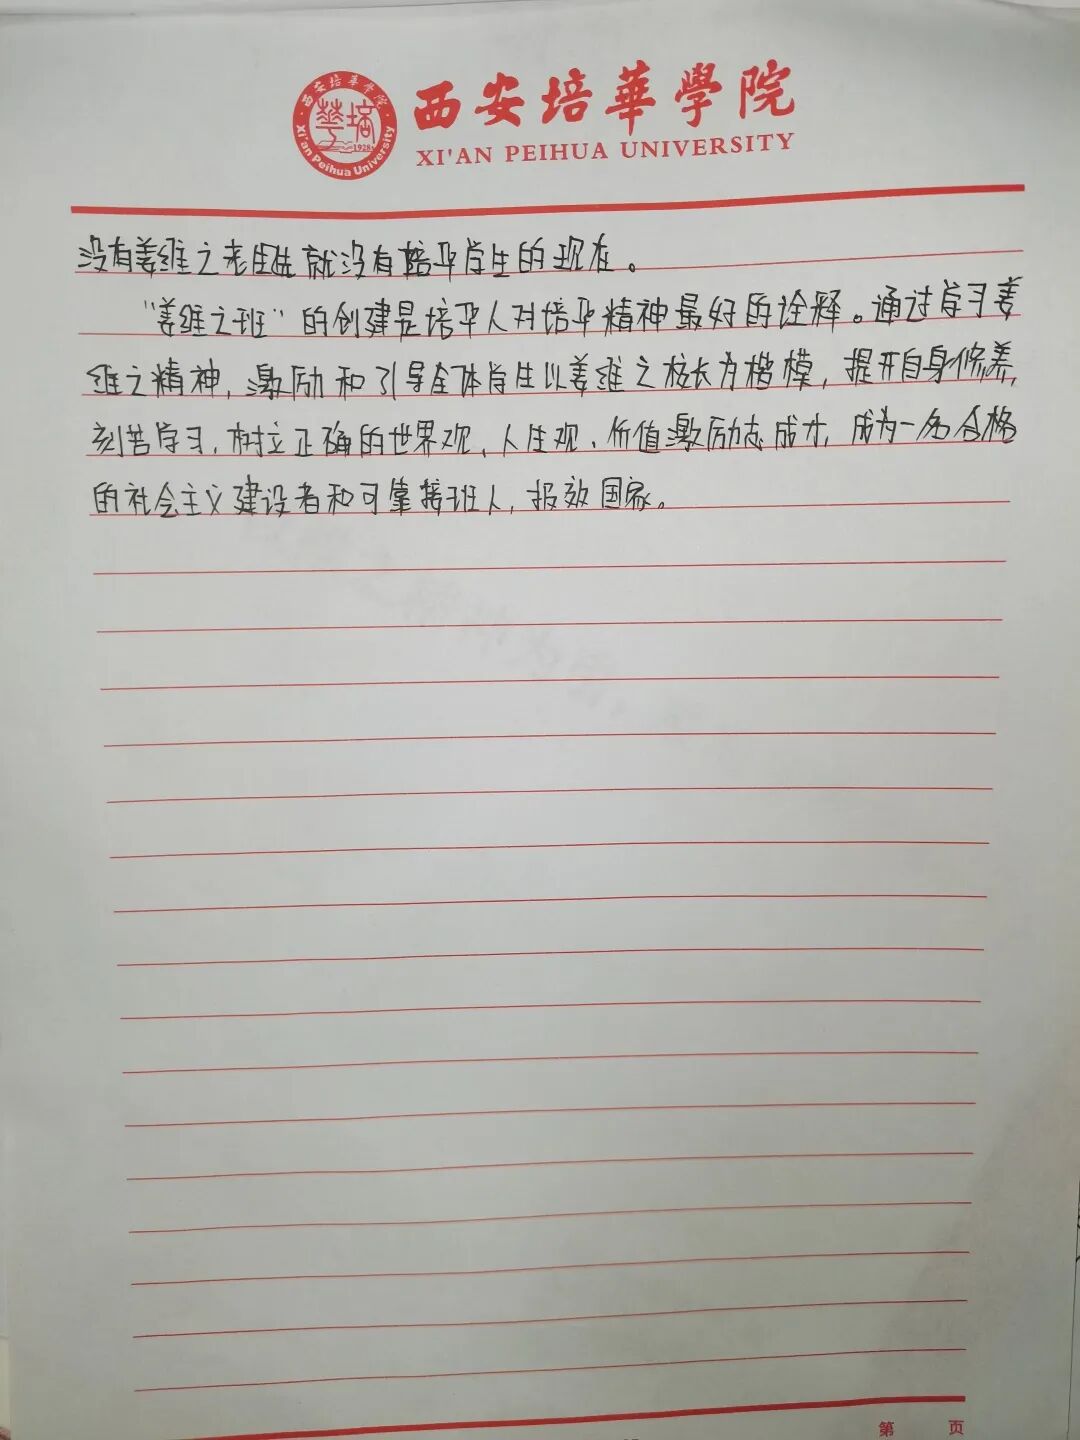 西安培華學院
XI'AN PEIHUA UNIVERSITY
西安培华学院
華培
1928
Xi'an Peihua University
没有姜维之老先生就没有培华学生的现在。
“姜维之班”的创建是培华人对培华精神最好的诠释。通过学习姜
维之精神,激励和引导全体学生以姜维之校长为楷模,提升自身修养,
刻苦学习,树立正确的世界观、人生观、价值激励志成才,成为一名合格
的社会主义建设者和可靠接班人,报效国家。
第 页